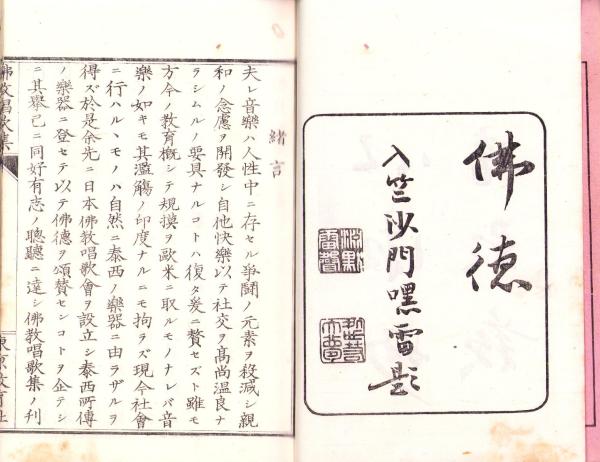 佛徳
入竺沙門嘿雷題
緒言
夫レ音樂ハ人性中ニ存セル爭鬪ノ元素ヲ殺减シ親
和ノ念慮ヲ開發シ自他快樂以テ社交ヲ高尚温良ナ
ラシムルノ要具ナルコトハ復タ爰ニ贅セズト雖モ
方今ノ教育概シテ規摸ヲ歐米ニ取ルモノナレバ音
樂ノ如キモ其濫觴ノ印度ナルニモ拘ラズ現今社會
ニ行ハルヽモノハ自然ニ泰西ノ樂器ニ由ラザルヲ
得ズ於是余先ニ日本佛教唱歌會ヲ設立シ泰西所傳
ノ樂器ニ登セテ以テ佛德ヲ頌賛センコトヲ企テシ
ニ其擧已ニ同好有志ノ聰聽ニ達シ佛教唱歌集ノ刋
佛教唱歌集
東京教育社